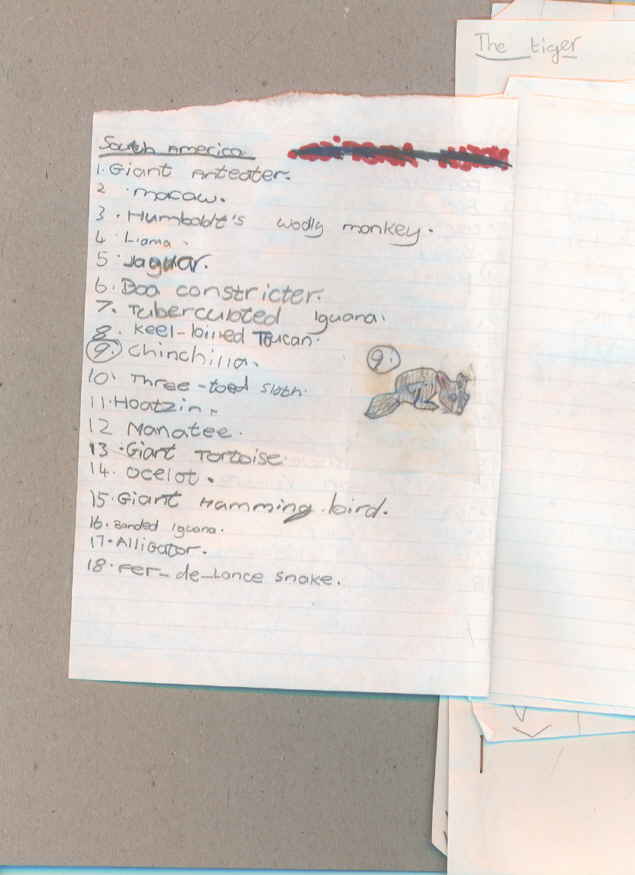 The tiger
South America
1. Giant Anteater.
2. macaw.
3. Humboldt's wooly monkey.
4. Llama.
5. Jaguar.
6. Boa constricter.
7. Tuberculated Iguana.
8. Keel-billed Toucan.
9. Chinchilla.
9.
10. Three-toed sloth.
11. Hoatzin.
12 Manatee.
13. Giant Tortoise.
14. Ocelot.
15. Giant Hamming bird.
16. Banded Iguana.
17. Alligator.
18. Fer-de-Lance snake.